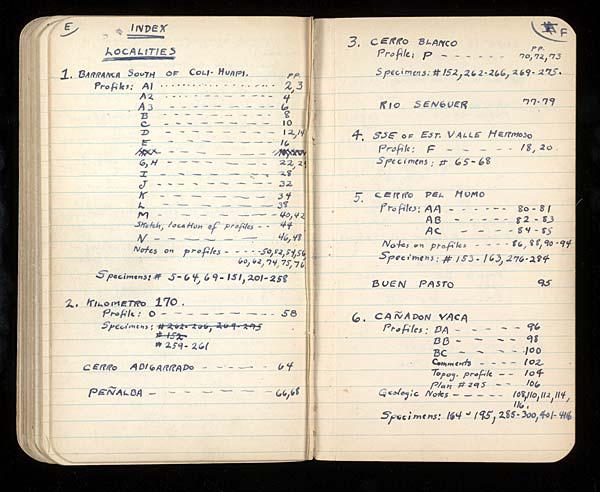 E
INDEX
LOCALITIES
1. BARRANCA SOUTH OF COLI-HUAPI. PP.
Profiles: A1 ---------- 2,3
A2 - - - - - - - 4
A3 - - - - - - - 6
B - - - - - - - 8
C - - - - - - - 10
D - - - - - - - 12,14
E - - - - - - - 16
G,H - - - - - - - 22,24
I - - - - - - - 28
J - - - - - - - 32
K - - - - - - - 34
L - - - - - - - 38
M - - - - - - - 40,42
Sketch, location of profiles - - - 44
N - - - - - - - 46,48
Notes on profiles - - - - - 50,52,54,56
60,62,74,75,76
Specimens: # 5-64, 69-151, 201-258
2. KILOMETRO 170.
Profile: O - - - - - - - 58
Specimens: # 262-266, 269-275
# 152
# 259-261
CERRO ABIGARRADO - - - - - - 64
PEÑALBA - - - - - - - 66,68
F
3. CERRO BLANCO PP.
Profile: P - - - - - - - 70,72,73
Specimens: # 152, 262-266, 269-275.
RIO SENGUER 77-79
4. SSE OF EST. VALLE HERMOSO
Profile: F - - - - - - 18,20
Specimens: # 65-68
5. CERRO DEL HUMO
Profiles: AA - - - - - - 80-81
AB - - - - - - 82-83
AC - - - - - - 84-85
Notes on profiles - - - - 86,88,90-94
Specimens: # 153-163, 276-284
BUEN PASTO 95
6. CAÑADON VACA
Profiles: DA - - - - - - 96
BB - - - - - 98
BC - - - - - 100
Comments - - - - - 102
Topog. profile - - 104
Plan # 295 - - - 106
Geologic Notes - - - - - 108,110,112,114,
116,
Specimens: 164-195, 285-300, 401-416